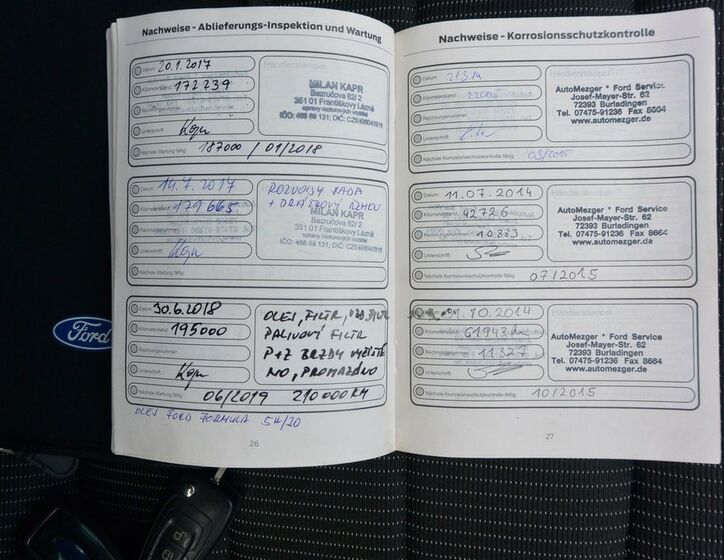 Nachweise - Ablieferungs-Inspektion und Wartung
Datum: 20.1.2017
Kilometerstand: 172 239
Rechnungsnummer:
Unterschrift:
Nächste Wartung fällig: 187000 / 01/2018
Händlerstempel
MILAN KAPR
Bezručova 62/2
351 01 Františkovy Lázně
opravy motorových vozidel
IČO: 466 69 131; DIČ: CZ6406040916
Datum: 14.7.2017
Kilometerstand: 179 665
Rechnungsnummer:
Unterschrift:
Nächste Wartung fällig:
ROZVODY SADA
+ DRÁŽKOVÝ ŘEMEN
MILAN KAPR
Bezručova 62/2
351 01 Františkovy Lázně
opravy motorových vozidel
IČO: 466 69 131; DIČ: CZ6406040916
Datum: 30.6.2018
Kilometerstand: 195000
Rechnungsnummer:
Unterschrift:
Nächste Wartung fällig: 06/2019 210 000 KM
OLEJ, FILTR,
PALIVOVÝ FILTR
P+Z BRZDY VYČIŠTĚ
NO, PROMAZÁNO
OLEJ FORD FORMULA 5W/30
26
Nachweise - Korrosionsschutzkontrolle
Datum:
Kilometerstand:
Rechnungsnummer:
Unterschrift:
Nächste Korrosionsschutzkontrolle fällig: 03/2015
Händlerstempel
AutoMezger * Ford Service
Josef-Mayer-Str. 62
72393 Burladingen
Tel. 07475-91236 Fax 8664
www.automezger.de
Datum: 11.07.2014
Kilometerstand: 42726
Rechnungsnummer: 10883
Unterschrift:
Nächste Korrosionsschutzkontrolle fällig: 07/2015
Händlerstempel
AutoMezger * Ford Service
Josef-Mayer-Str. 62
72393 Burladingen
Tel. 07475-91236 Fax 8664
www.automezger.de
31.10.2014
Kilometerstand: 61943
Rechnungsnummer: 11327
Unterschrift:
Nächste Korrosionsschutzkontrolle fällig: 10/2015
Händlerstempel
AutoMezger * Ford Service
Josef-Mayer-Str. 62
72393 Burladingen
Tel. 07475-91236 Fax 8664
www.automezger.de
27
Ford